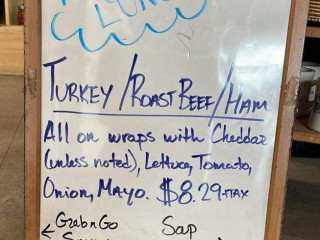 LUNCH
TURKEY/ROAST BEEF/HAM
All on wraps with Cheddar
(unless noted), Lettuce, Tomato,
Onion, Mayo. $8.29+TAX
← Grab n Go
Soup